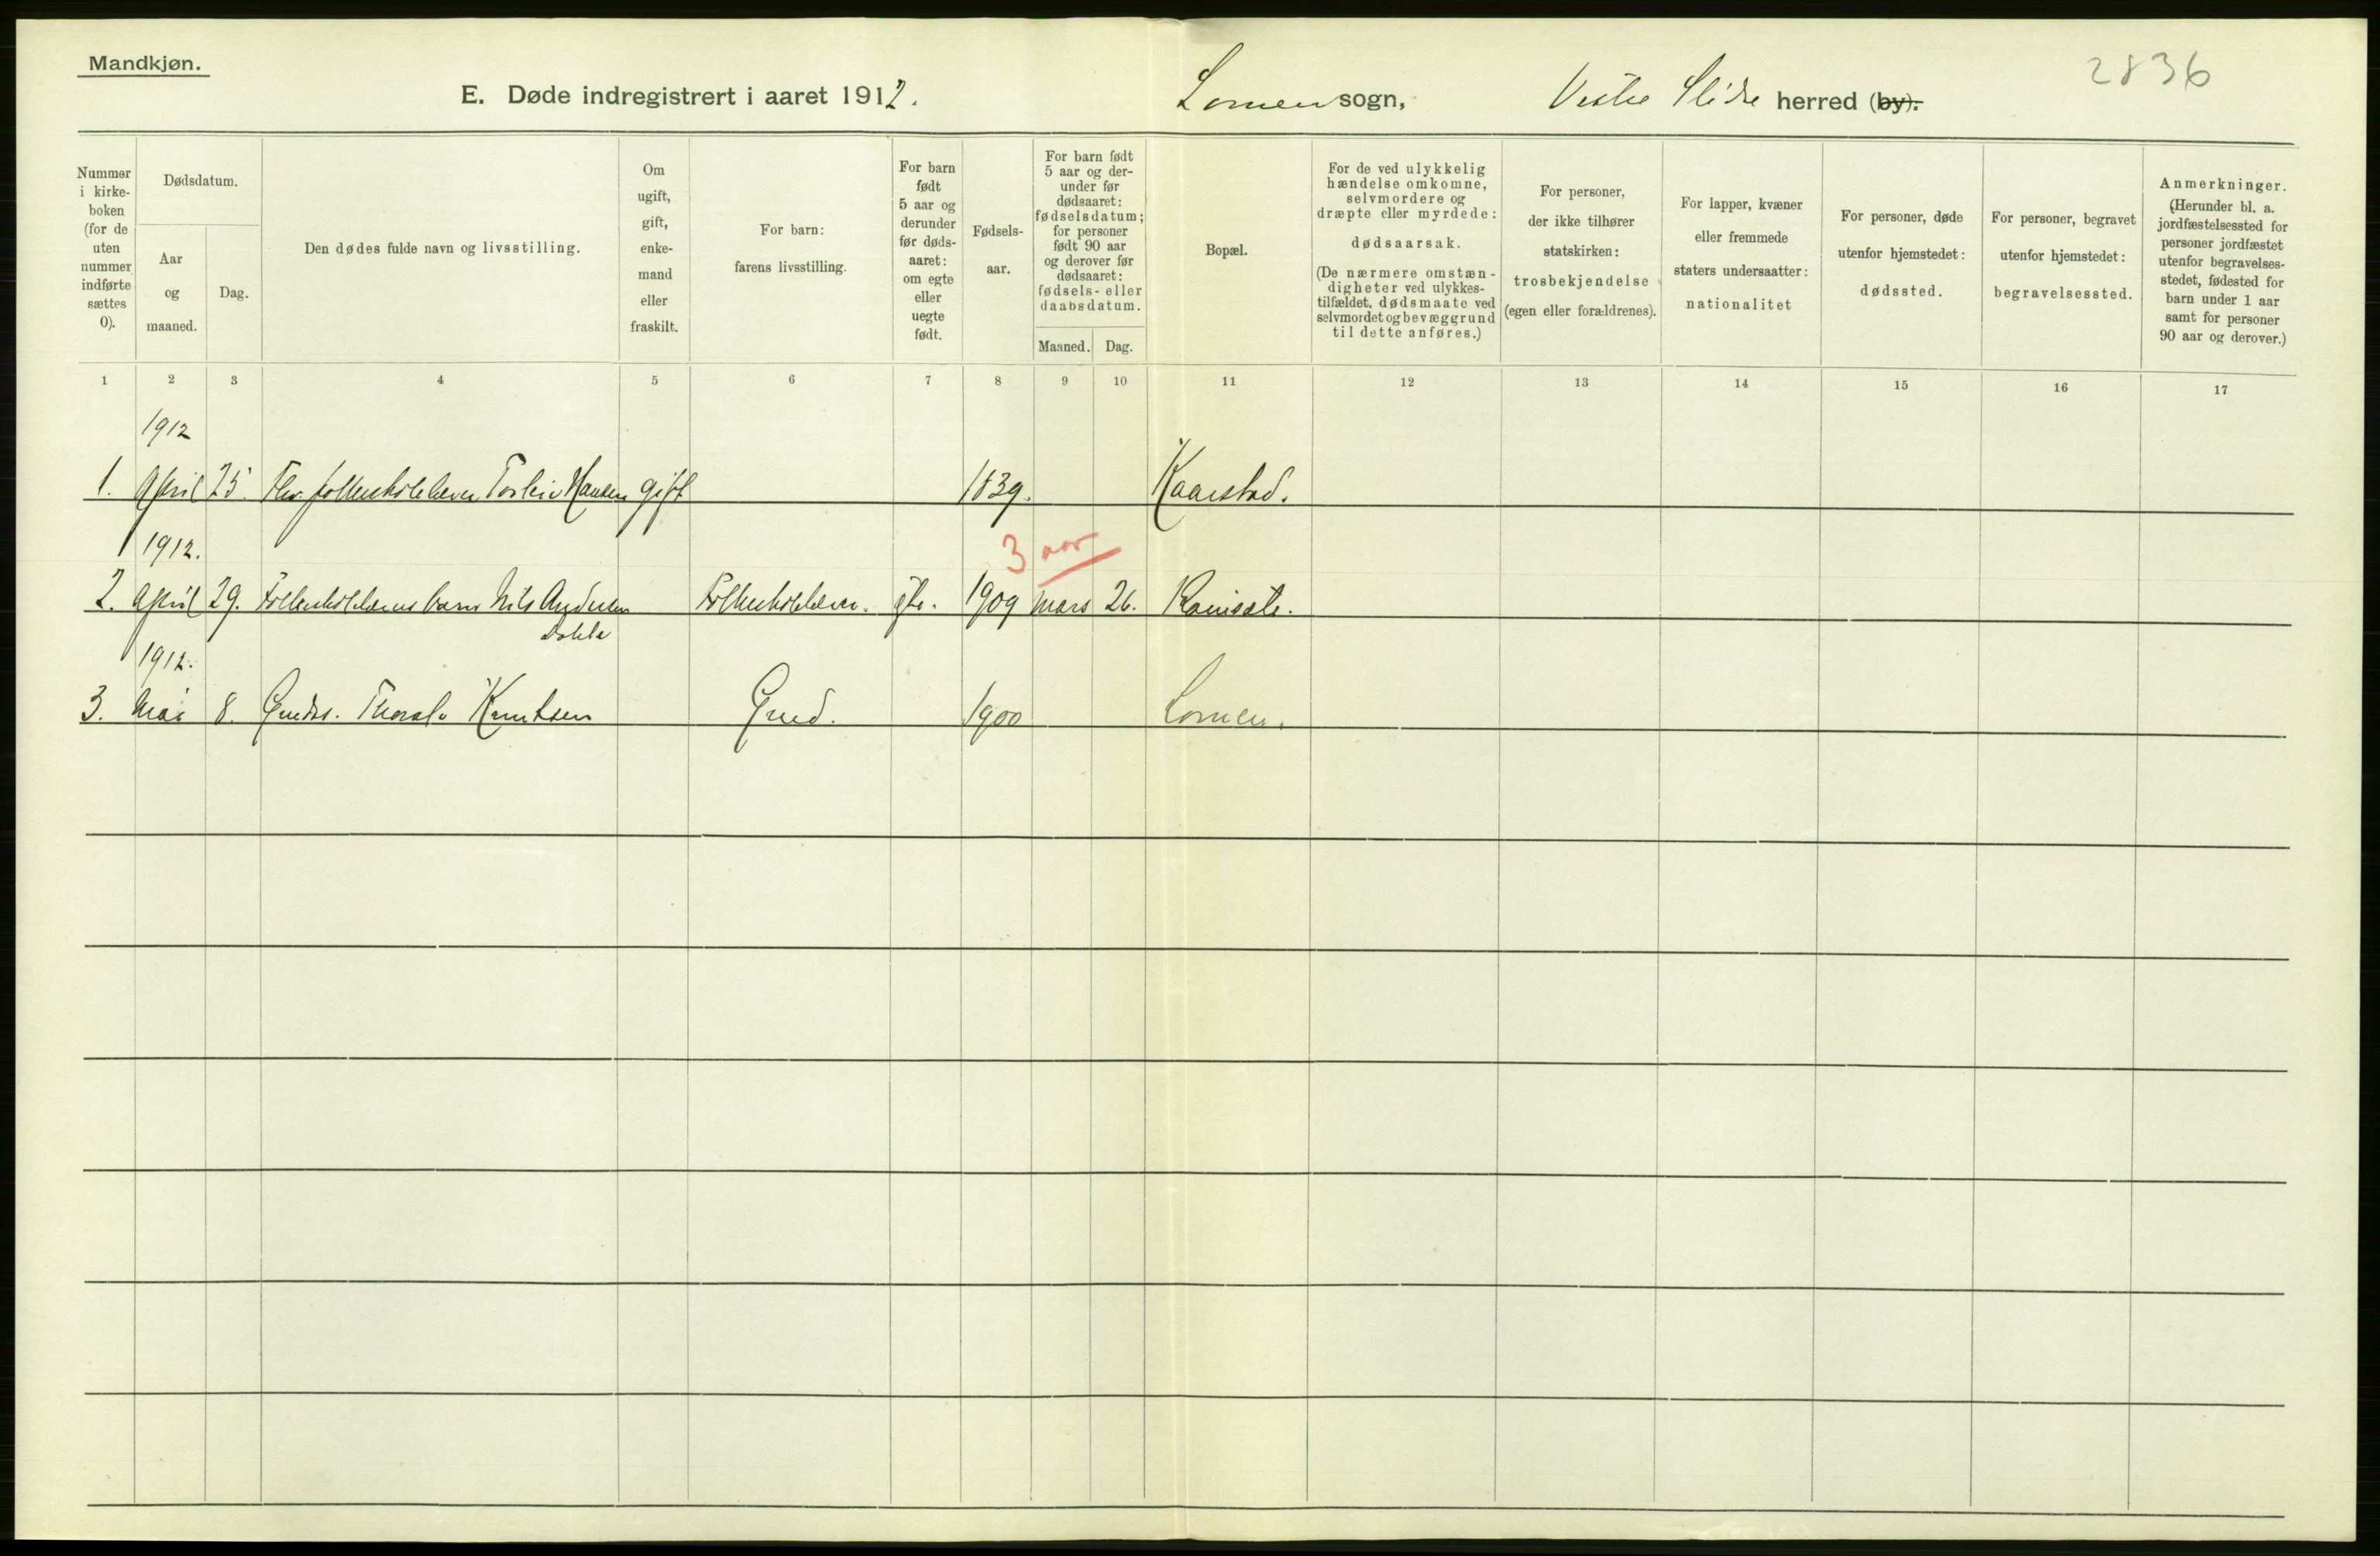 Mandkjøn.
2836
E. Døde indregistrert i aaret 1912. Lomen sogn, Vestre Slidre herred (by).
Nummer i kirke-boken (for de uten nummer indførte sættes 0).
Dødsdatum.
Aar og maaned.
Dag.
Den dødes fulde navn og livsstilling.
Om ugift, gift, enke-mand eller fraskilt.
For barn: farens livsstilling.
For barn født 5 aar og derunder før døds-aaret: om egte eller uegte født.
Fødsels-aar.
For barn født 5 aar og der-under før dødsaaret: fødselsdatum; for personer født 90 aar og derover før dødsaaret: fødsels- eller daabsdatum.
Maaned.
Dag.
Bopæl.
For de ved ulykkelig hændelse omkomne, selvmordere og dræpte eller myrdede: dødsaarsak. (De nærmere omstæn-digheter ved ulykkes-tilfældet, dødsmaate ved selvmordet og bevæggrund til dette anføres.)
For personer, der ikke tilhører statskirken: trosbekjendelse (egen eller forældrenes).
For lapper, kvæner eller fremmede staters undersaatter: nationalitet
For personer, døde utenfor hjemstedet: dødssted.
For personer, begravet utenfor hjemstedet: begravelsessted.
Anmerkninger. (Herunder bl. a. jordfæstelsessted for personer jordfæstet utenfor begravelses-stedet, fødested for barn under 1 aar samt for personer 90 aar og derover.)
1 2 3 4 5 6 7 8 9 10 11 12 13 14 15 16 17
1912
1. April 25. Torleiv Hansen gift 1839. Kaarstad.
1912.
3 aar
2. April 29. barn Nils Andersen gte. 1909 Mars 26.
Dokka
1912.
3. Mai 8. Grdss. Thoralv Knutsen Grd. 1900 Lomen.